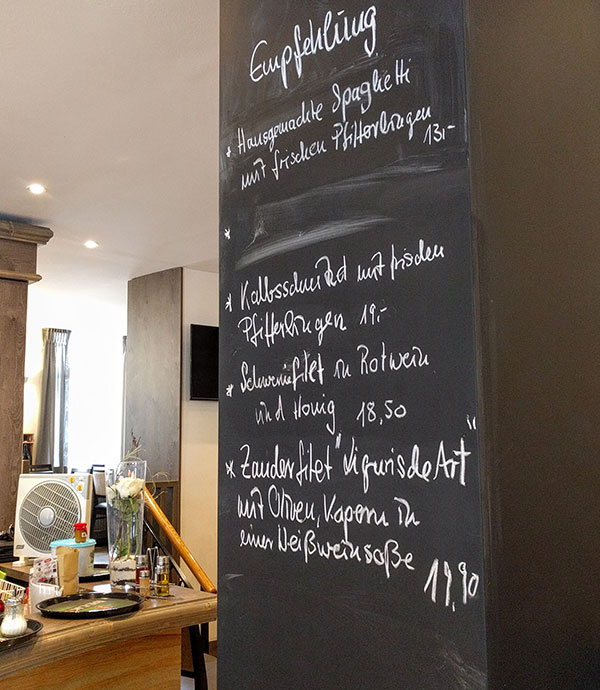 Empfehlung
* Hausgemachte Spaghetti
mit frischen Pfifferlingen 13,-
*
* Kalbsschnitzel mit frischen
Pfifferlingen 19,-
* Schweinefilet in Rotwein
und Honig 18,50
* Zanderfilet "Ligurische Art"
mit Oliven, Kapern in
einer Weißweinsoße
19,90